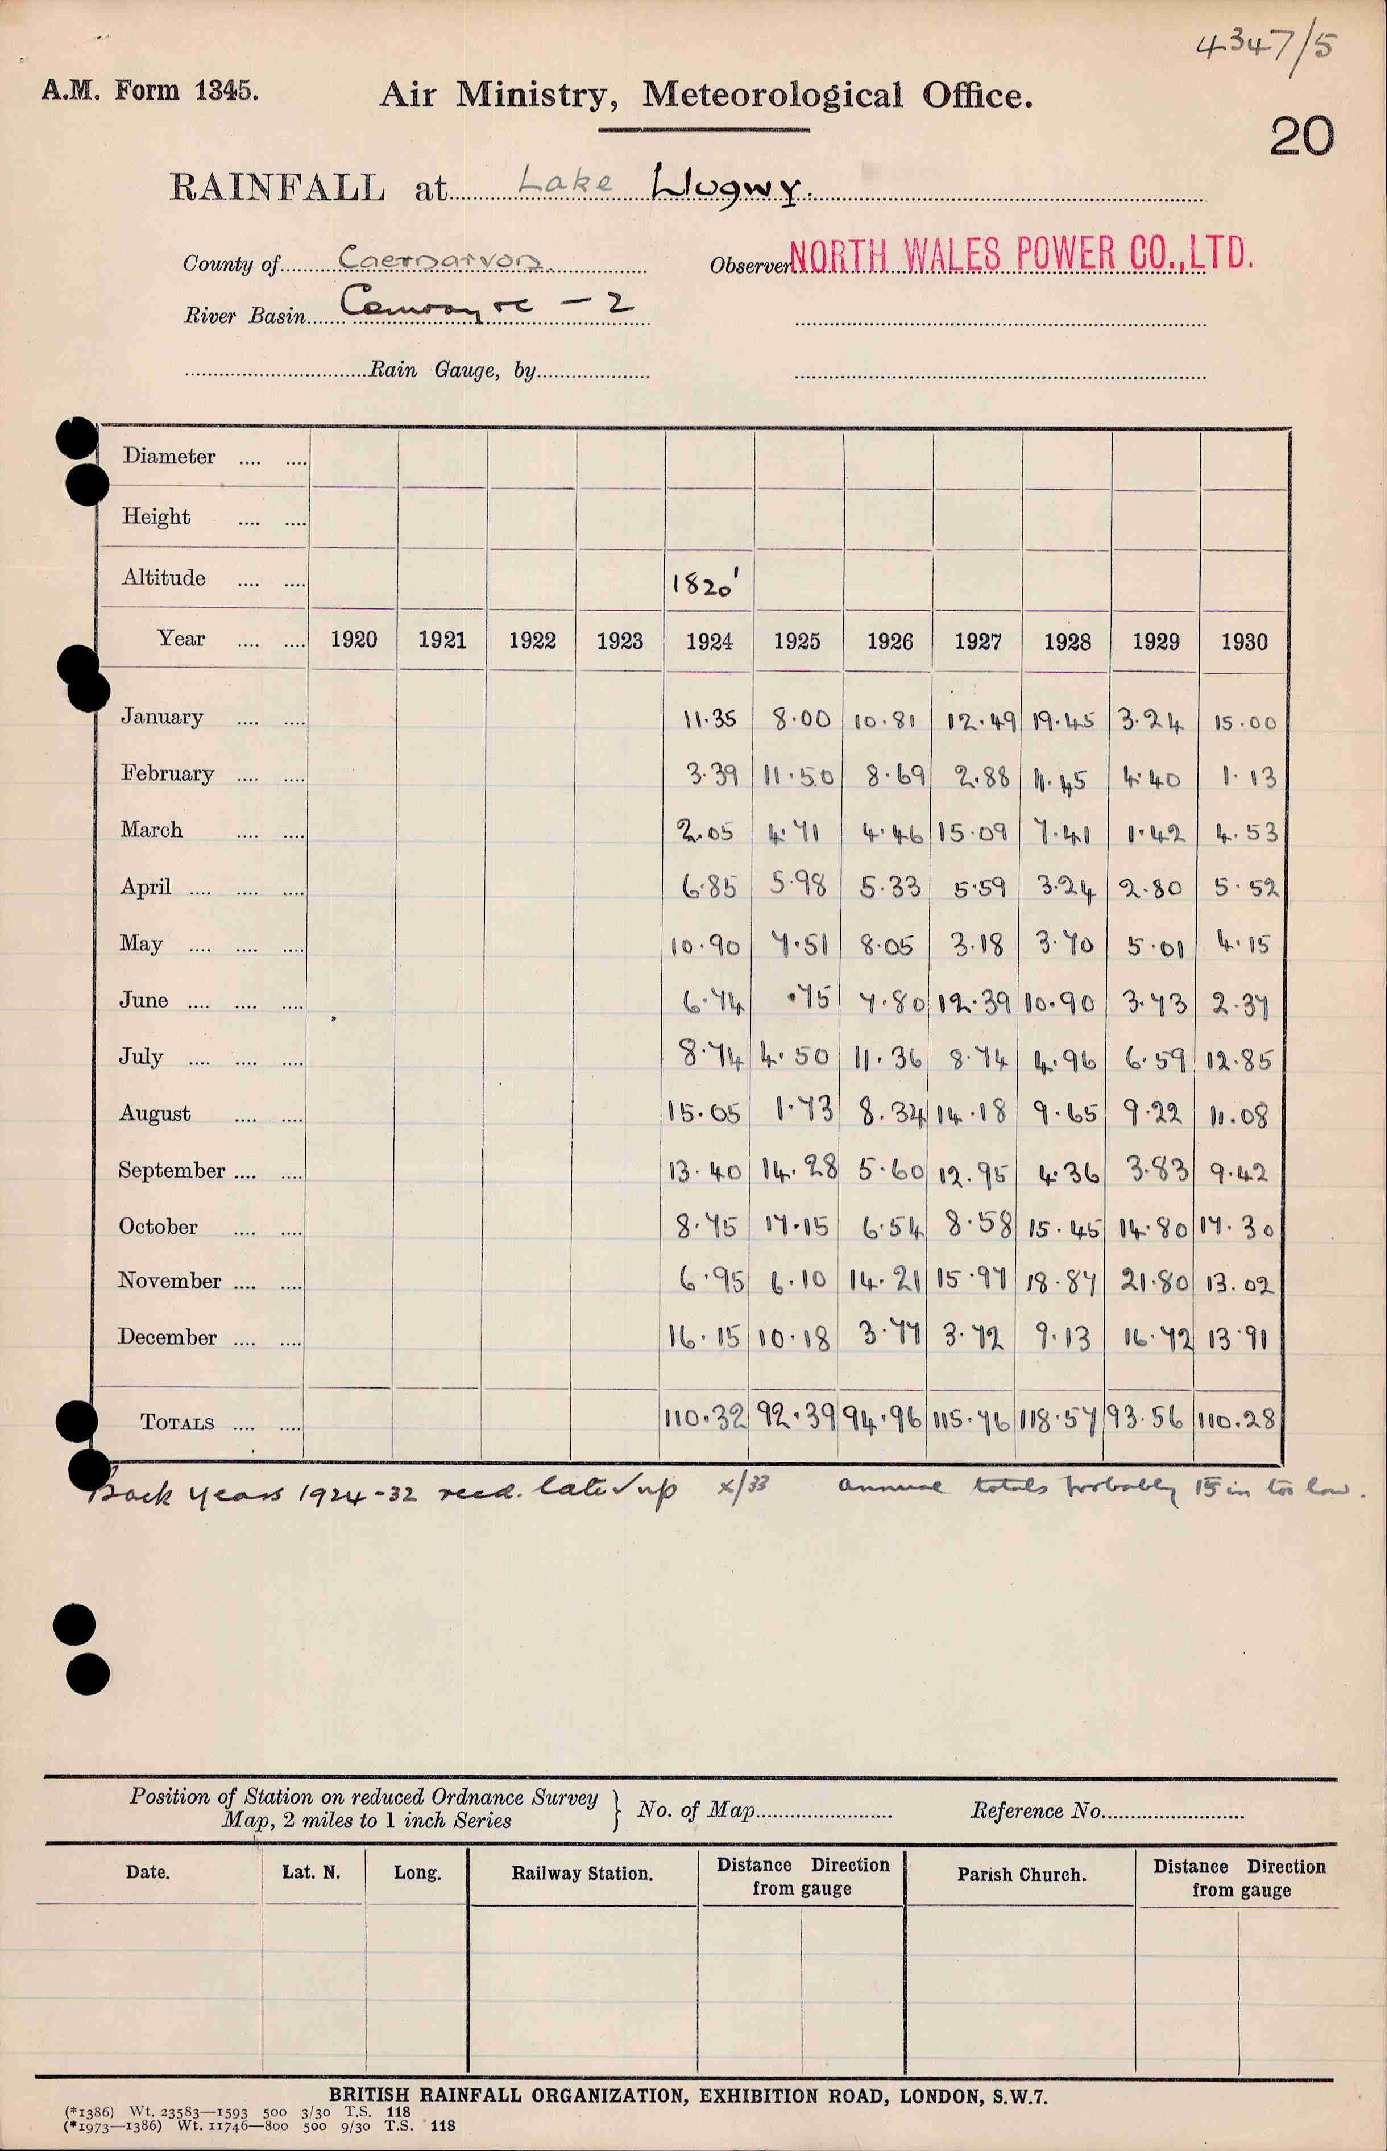 4347/5
A.M. Form 1345. Air Ministry, Meteorological Office.
20
RAINFALL at Lake Llugwy.
County of Caernarvon Observer NORTH WALES POWER CO., LTD.
River Basin Conway etc - 2
Rain Gauge, by
Diameter
Height
Altitude 1820'
Year 1920 1921 1922 1923 1924 1925 1926 1927 1928 1929 1930
January 11.35 8.00 10.81 12.49 19.45 3.24 15.00
February 3.39 11.50 8.69 2.88 11.45 4.40 1.13
March 2.05 4.71 4.46 15.09 7.41 1.42 4.53
April 6.85 5.98 5.33 5.59 3.24 2.80 5.52
May 10.90 7.51 8.05 3.18 3.70 5.01 4.15
June 6.74 .75 7.80 12.39 10.90 3.73 2.37
July 8.74 4.50 11.36 8.74 4.96 6.59 12.85
August 15.05 1.73 8.34 14.18 9.65 9.22 11.08
September 13.40 14.28 5.60 12.95 4.36 3.83 9.42
October 8.75 17.15 6.54 8.58 15.45 14.80 17.30
November 6.95 6.10 14.21 15.97 18.87 21.80 13.02
December 16.15 10.18 3.77 3.72 9.13 16.72 13.91
TOTALS 110.32 92.39 94.96 115.76 118.57 93.56 110.28
Back years 1924-32 recd. late ✓ up x/33 annual totals probably 15 in too low.
Position of Station on reduced Ordnance Survey
Map, 2 miles to 1 inch Series } No. of Map Reference No.
Date. Lat. N. Long. Railway Station. Distance Direction from gauge Parish Church. Distance Direction from gauge
BRITISH RAINFALL ORGANIZATION, EXHIBITION ROAD, LONDON, S.W.7.
(*1386) Wt. 23583—1593 500 3/30 T.S. 118
(*1973—1386) Wt. 11746—800 500 9/30 T.S. 118